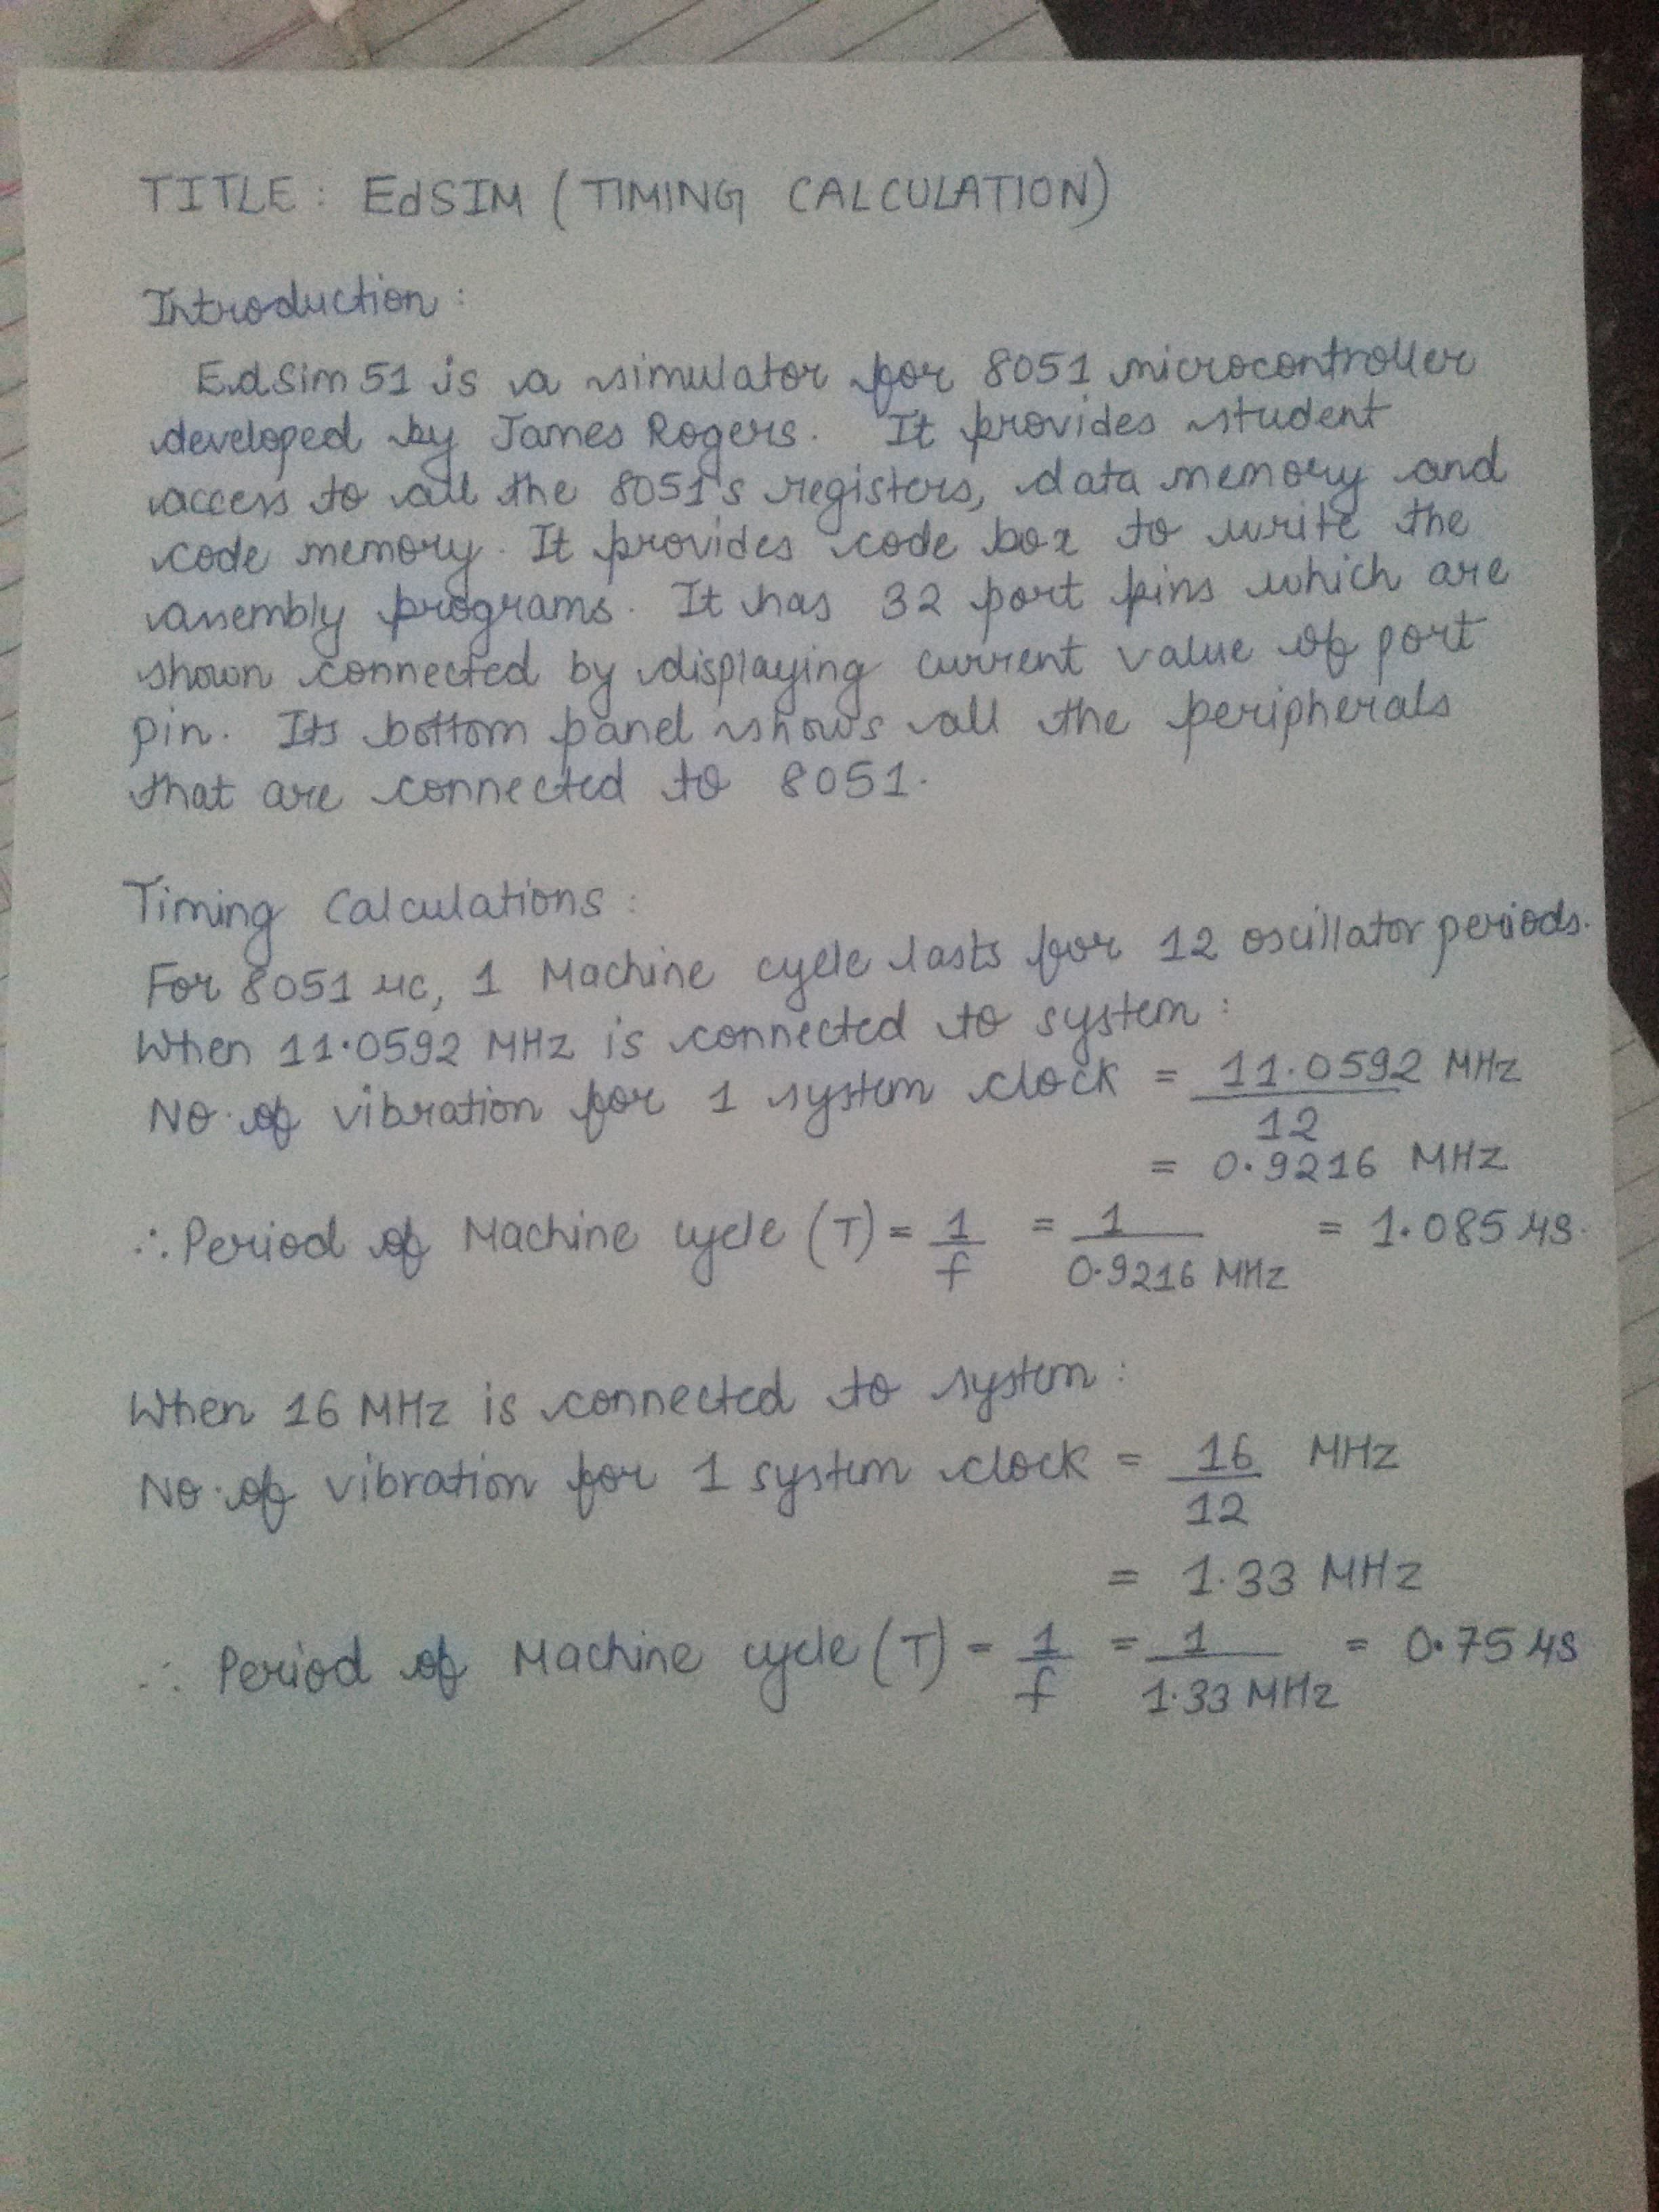 TITLE: EdSIM (TIMING CALCULATION)
Introduction:
EdSim51 is a simulator for 8051 microcontroller
developed by James Rogers. It provides student
access to all the 8051's registers, data memory and
code memory. It provides code box to write the
assembly programs. It has 32 port pins which are
shown connected by displaying current value of port
pin. Its bottom panel shows all the peripherals
that are connected to 8051.
Timing Calculations:
For 8051 μc, 1 Machine cycle lasts for 12 oscillator periods.
When 11.0592 MHz is connected to system:
No. of vibration for 1 system clock = 11.0592 MHz
12
= 0.9216 MHz
∴ Period of Machine cycle (T) = 1/f = 1/0.9216 MHz = 1.085 μs.
When 16 MHz is connected to system:
No. of vibration for 1 system clock = 16 MHz
12
= 1.33 MHz
∴ Period of Machine cycle (T) = 1/f = 1/1.33 MHz = 0.75 μs